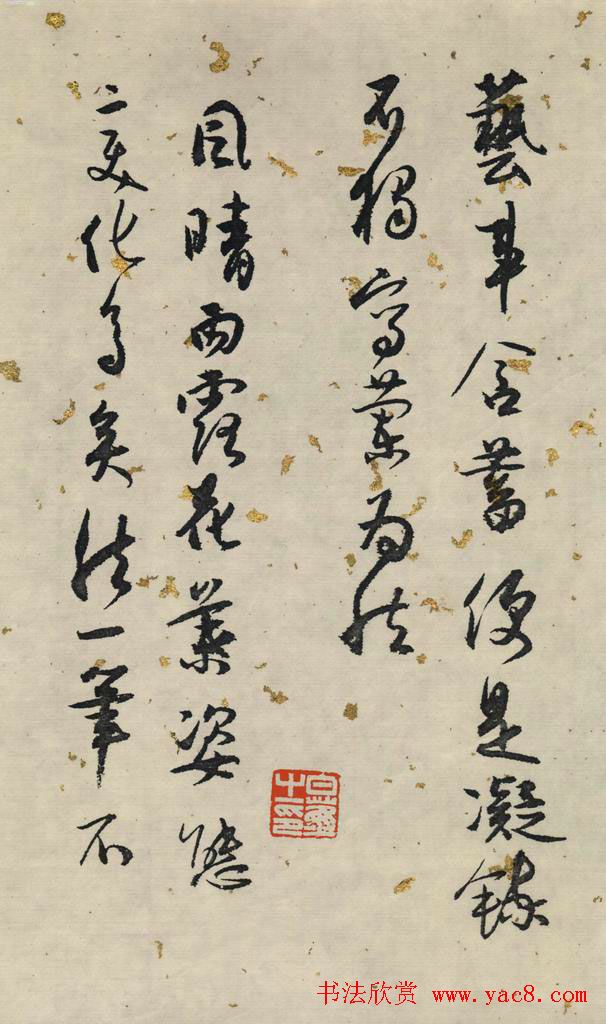 藝事含蓄便是凝鍊
不獨寫蘭為然
風晴雨露花葉姿態
變化多矣然一筆不
书法欣赏 www.yac8.com